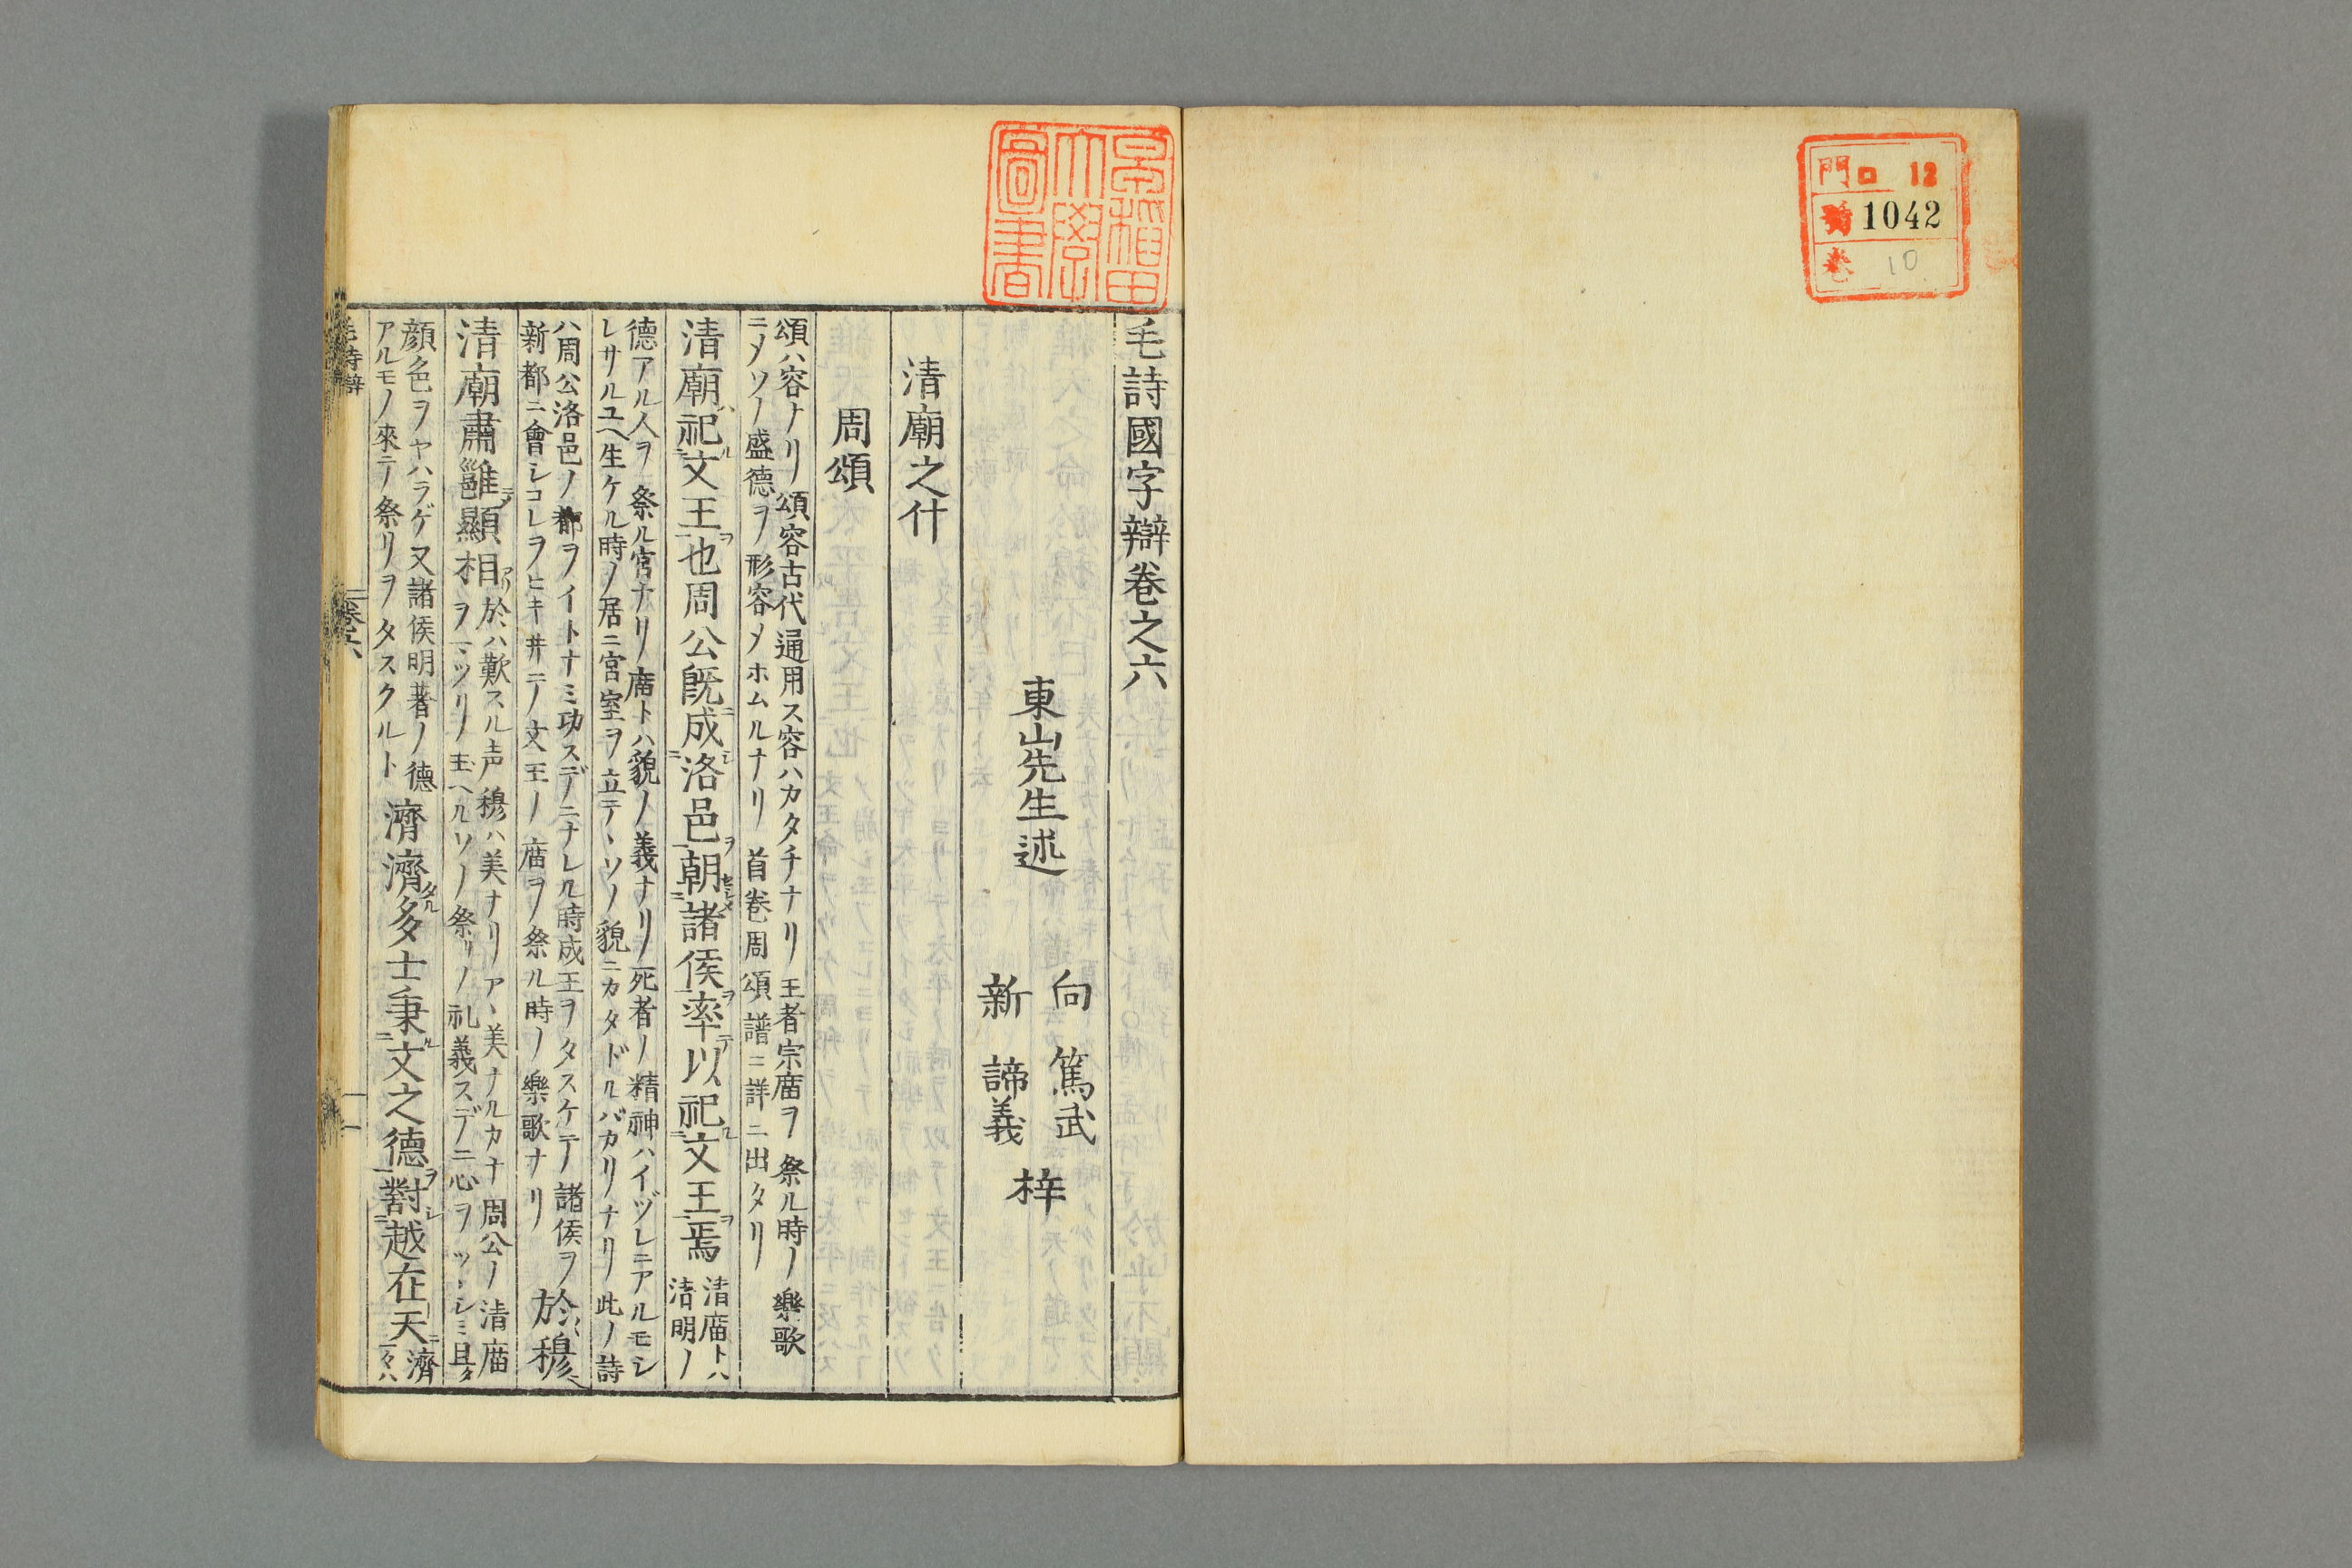 門 ロ 12
號 1042
卷 10
早稲田
大學
圖書
毛詩國字辯卷之六
東山先生述
向 篤武
新 諦義
梓
清廟之什
周頌
頌ハ容ナリ頌容古代通用ス容ハカタチナリ王者宗庿ヲ祭ル時ノ樂歌
ニメソノ盛德ヲ形容メホムルナリ首卷周頌譜ニ詳ニ出タリ
清廟祀文王也周公既成洛邑朝諸侯率以祀文王焉
清庿トハ
清明ノ
德アル人ヲ祭ル宮ナリ庿トハ貌ノ義ナリ死者ノ精神ハイヅレニアルモシ
レサルユヘ生ケル時ノ居ニ宮室ヲ立テヽソノ貌ニカタドルバカリナリ此ノ詩
ハ周公洛邑ノ都ヲイトナミ功スデニナレル時成王ヲタスケテ諸侯ヲ
新都ニ會シコレヲヒキ井テ文王ノ庿ヲ祭ル時ノ樂歌ナリ
於穆
清廟肅雝顯相
於ハ歎スル声穆ハ美ナリアヽ美ナルカナ周公ノ清庿
ヲマツリ玉ヘルソノ祭リノ礼義スデニ心ヲツヽシミ且タ
顔色ヲヤハラゲ又諸侯明著ノ德
アルモノ來テ祭リヲタスクルト
濟濟多士秉文之德對越在天
濟
々ハ
毛詩辯 卷六 一